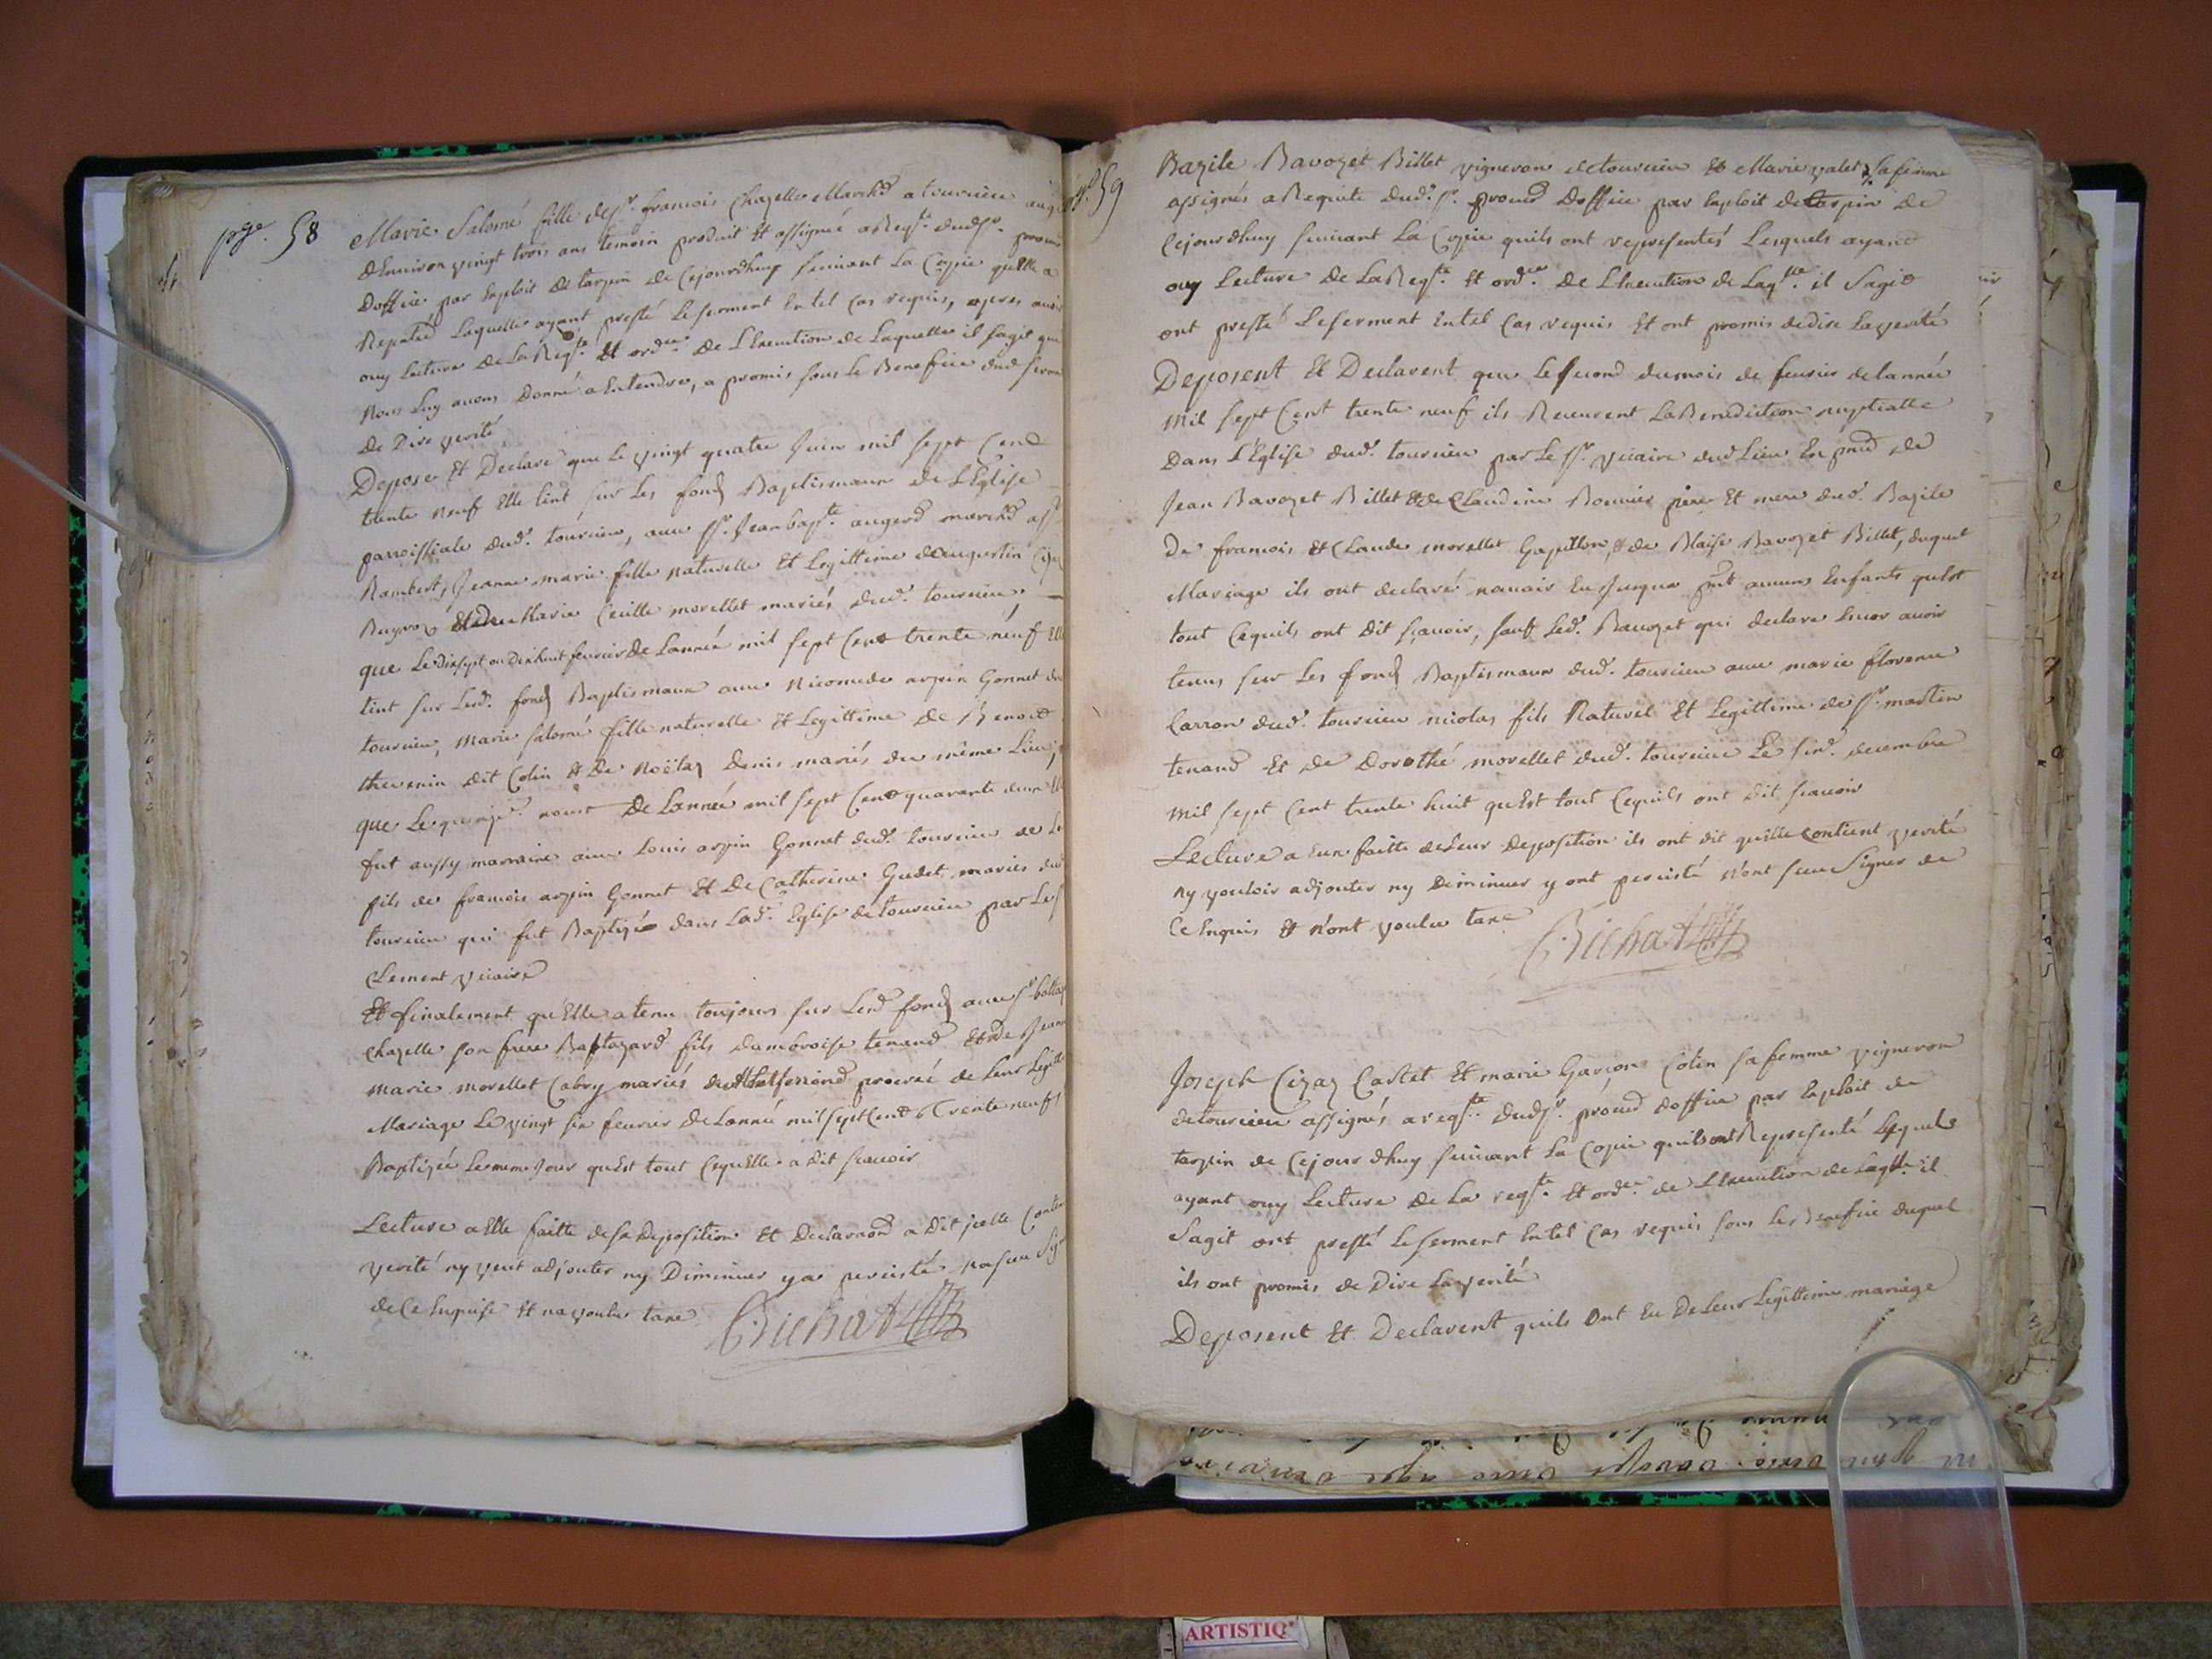 pge. 58
Marie Salomé fille de sr. francois Chazelle Marchd a tournieu
dEnviron vingt trois ans temoin produit Et assignée a Reqte. dudsr.
Doffice par Exploit de tarpin de Cejourdhuy suivant La Copie quElle a
Laquelle ayant presté Le serment En tel Cas requis, apres avoir
ouy Lecture de La Reqte. Et ordce. De LExecution de Laquelle il sagit que
Nous Luy avons Donné a Entendre, a promis sous Le Benefice dud serment
de Dire verité
Depose Et Declare que Le vingt quatre Juin mil sept Cent
trente neuf Elle tint sur Les fonds Baptismaux de LEglise
parroissiale dud. tournieu, avec sr. Jean bapte. marchd a st
Rambert, Jeanne marie fille naturelle Et Legittime daugustin
Et de Marie Cecille morellet mariés dud. tournieu,
que Le dixsept ou Dixhuit fevrier De Lannée mil sept Cent trente neuf Elle
tint sur Lesd. fonds Baptismaux avec Nicomede arpin Gonnet dud
tournieu, Marie salomé fille naturelle Et Legittime de Benoit
thevenin dit Colin Et De Noëlaz Denis mariés du même Lieu,
que Le quinze aoust De Lannée mil sept Cent quarante deux Elle
fut aussy marraine avec Louis arpin Gonnet dud. tournieu de
fils de francois arpin Gonnet Et De Catherine Gudet mariés dud
tournieu qui fut Baptizé dans Lad. Eglise de tournieu par Le sr
Clement vicaire
Et finalement quElle a tenu toujours sur Lesd fonds avec sr
Chazelle son frere Baltazard fils dambroise tenand Et de Jeanne
marie morellet Cabry mariés procréé de Leur Legitte
Mariage Le vingt six fevrier De Lannée mil sept Cent trente neuf
Baptizé Le meme Jour quEst tout CequElle a dit scavoir
Lecture a Elle faitte de sa Deposition Et Declaraond a Dit jcelle Contenir
verité ny veut adjouter ny Diminuer y a percisté na sceu signer
de Ce Enquise Et na voulu taxe
Bichat
59
Bazile Bavozet Billet vigneron de tournieu Et Marie valet sa femme
assignés a Requete dud. sr. Doffice par Exploit de tarpin de
Cejourdhuy suivant La Copie quils ont representés Lesquels ayant
ouy Lecture de La Reqte. Et ordce. de LExecution de Laqlle. il sagit
ont presté Le serment En tel Cas requis Et ont promis de dire La verité
Deposent Et Declarent que Le second du mois de fevrier de lannée
mil sept Cent trente neuf ils Receurent La Benediction nuptialle
Dans L'Eglise dud. tournieu par Le sr. vicaire dud Lieu En pnce de
Jean Bavozet Billet Et de Claudine Bonnier père Et mere dud. Bazile
De francois Et Claude morellet Gapillon, Et de Blaise Bavozet Billet, duquel
Mariage ils ont declaré navoir Eu Jusqua pnt aucuns Enfants quEst
tout Cequils ont dit scavoir, sauf Led. Bavozet qui declare Encor avoir
tenus sur Les fonds Baptismaux dud. tournieu avec marie florence
Carron dud. tournieu nicolas fils Naturel Et Legittime de sr. martin
tenand Et De Dorothé morellet dud. tournieu Le six. decembre
mil sept Cent trente huit quEst tout Cequils ont dit scavoir
Lecture a Eux faitte de Leur Deposition ils ont dit quElle Contient verité
ny vouloir adjouter ny Diminuer y ont percisté N'ont sceu signer de
Ce Enquis Et N'ont voulu taxe
Bichat
Joseph Cizaz Castet Et marie Garçon Colin sa femme vigneron
de tournieu assignés a reqte. dudsr. doffice par Exploit de
tarpin de Cejourdhuy suivant La Copie quils ont Representé Lesquels
ayant ouy Lecture De La reqte. Et ordce. de LExecution de Laqlle. il
Sagit ont presté Le serment En tel Cas requis sous Le Benefice duquel
ils ont promis de Dire La verité
Deposent Et Declarent quils Ont Eu De Leur Legittime mariage
ARTISTIQ